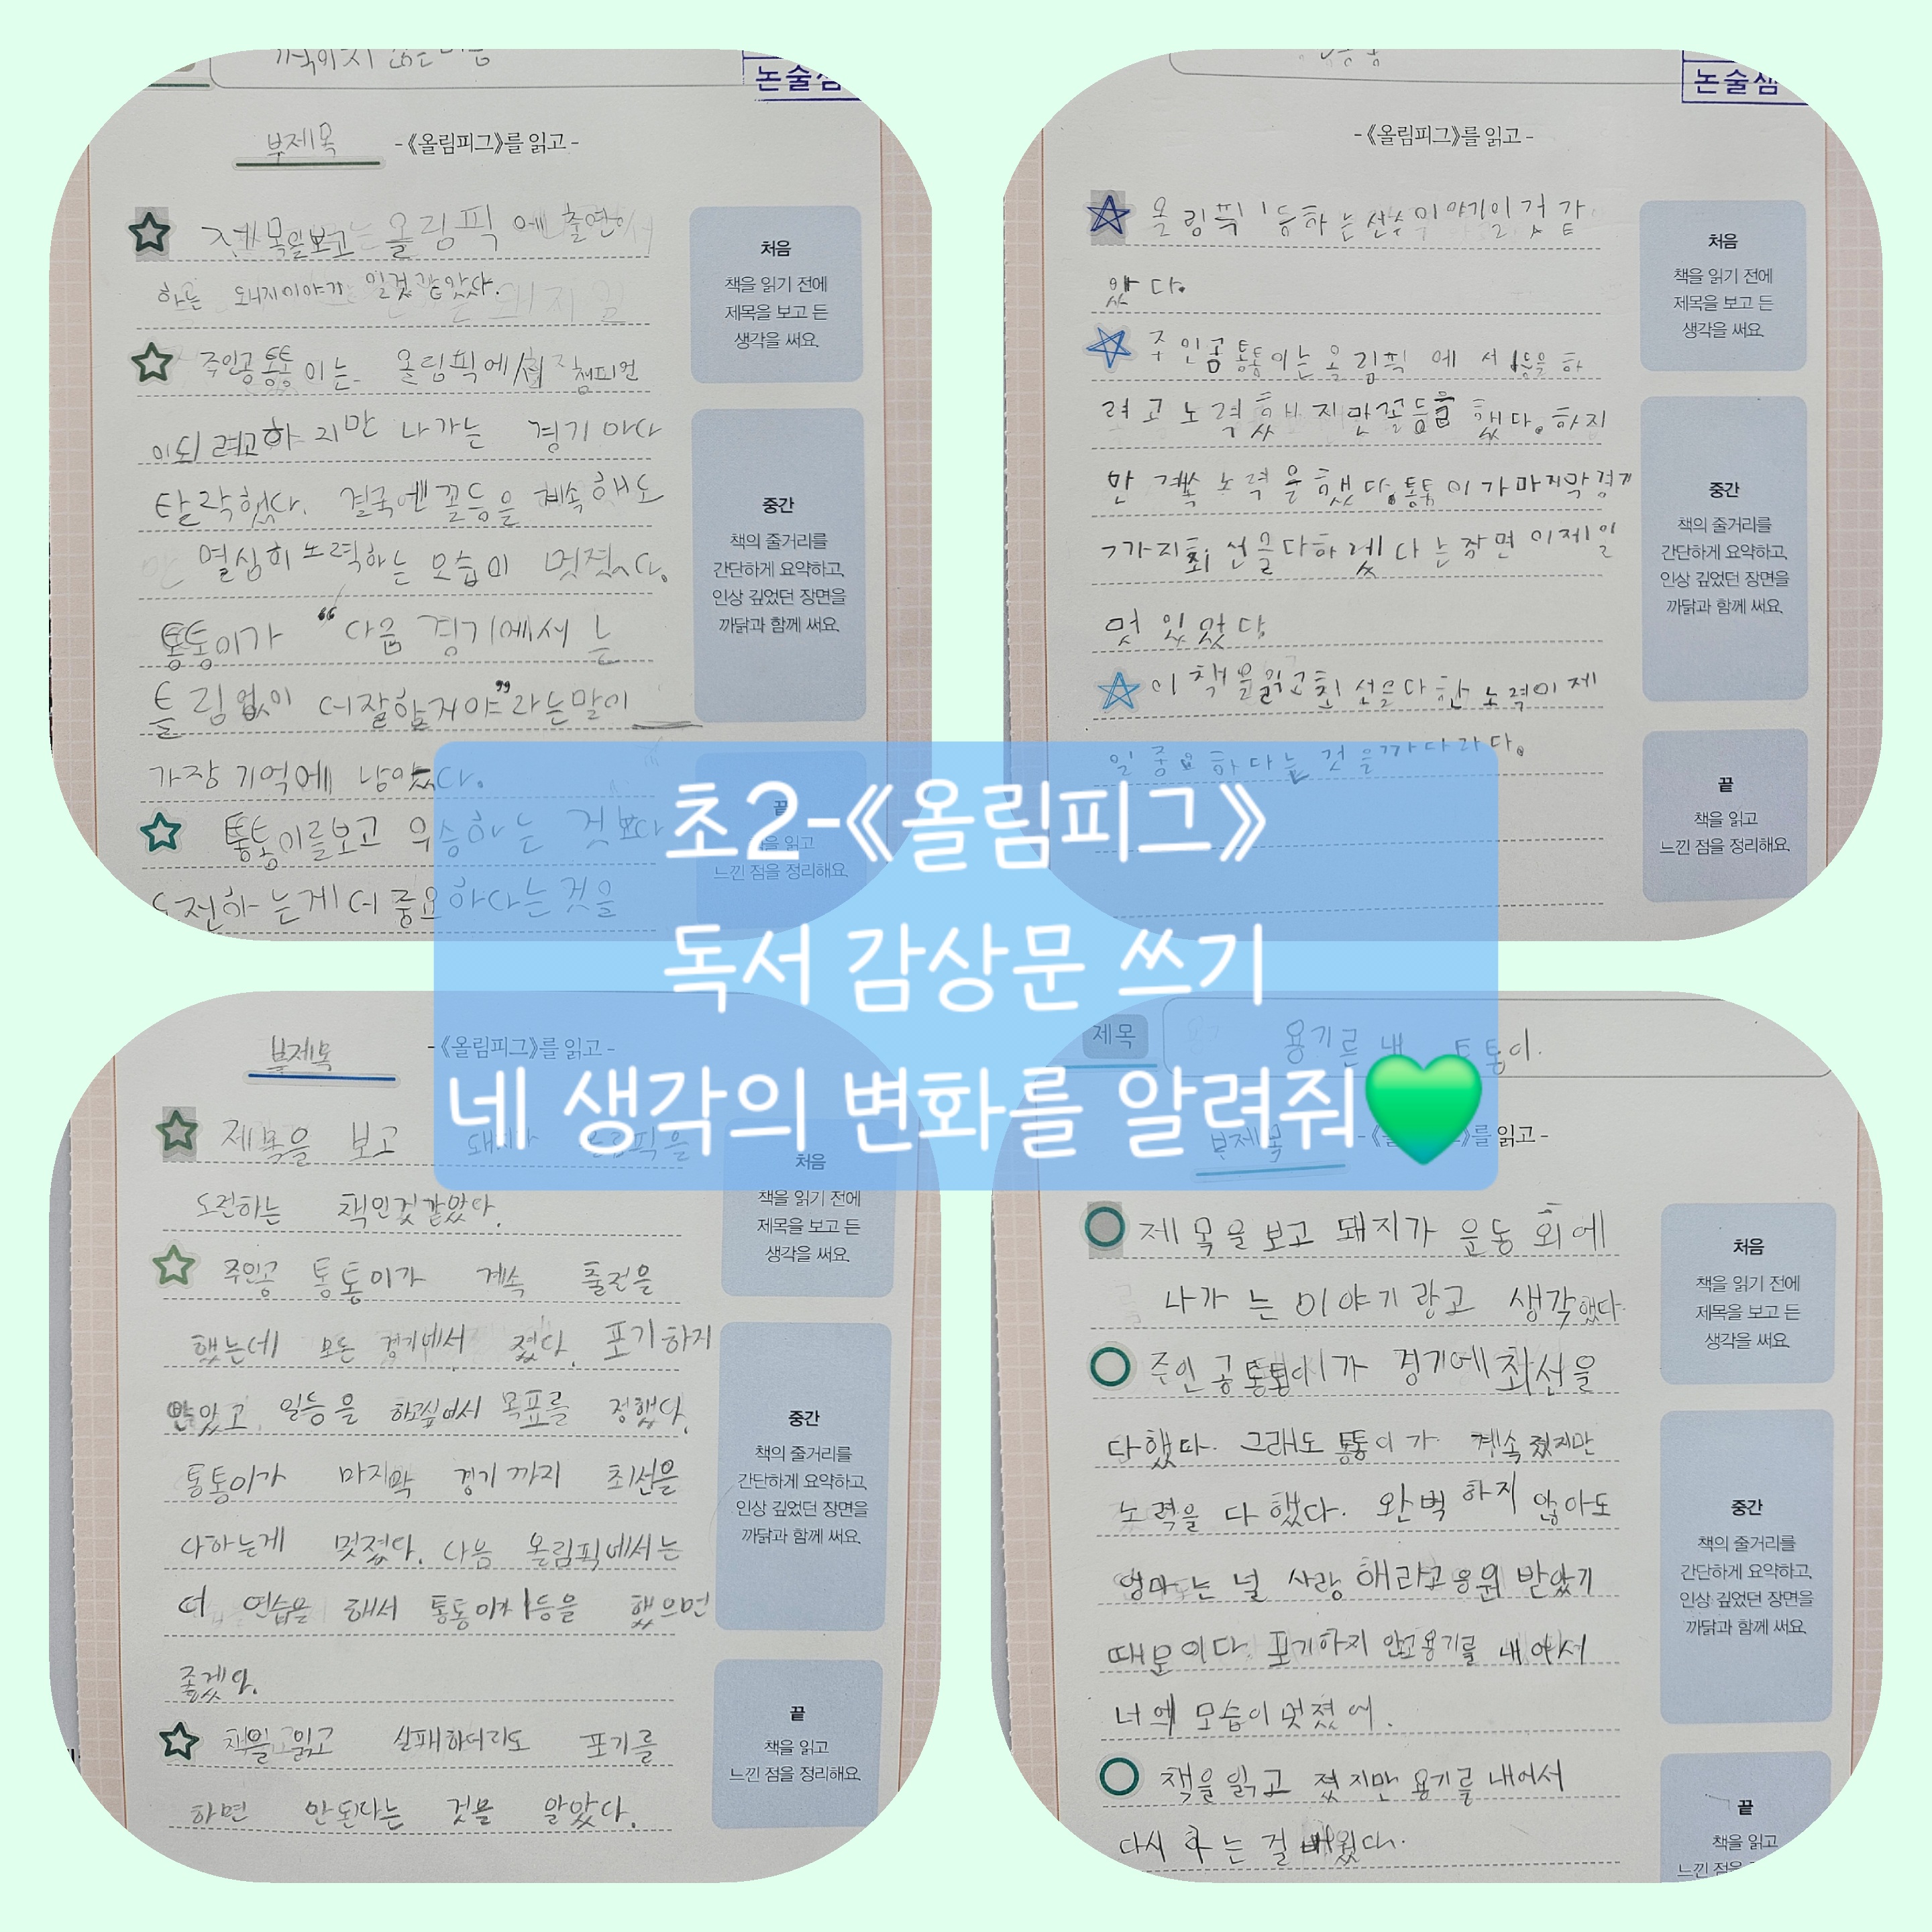 논술샘
부제목 -《올림피그》를 읽고-
제목을보고 올림픽 에 출연
하는 이야기 일것 같았다.
주인공통통이는 올림픽에 챔피언
이되려고하지만 나가는 경기마다
탈락했다. 결국엔꼴등을 계속해도
열심히노력하는 모습이 멋졌다.
통통이가 “다음 경기에서는
틀림없이 더잘할거야”라는말이
가장 기억에 남았다.
통통이를보고 우승하는 것보다
도전하는게더 중요하다는것을
처음
책을 읽기 전에
제목을 보고 든
생각을 써요.
중간
책의 줄거리를
간단하게 요약하고,
인상 깊었던 장면을
까닭과 함께 써요.
끝
책을 읽고
느낀 점을 정리해요.
논술샘
-《올림피그》를 읽고-
올림픽 1등하는선수의이야기일것같
았다.
주인공통통이는올림픽에서 1등을하
려고노력했지만꼴등을했다.하지
만계속노력을했다.통통이가마지막경기
까지최선을다하겠다는장면이제일
멋있었다
이책을읽고최선을다한노력이제
일중요하다는것을깨다라다.
처음
책을 읽기 전에
제목을 보고 든
생각을 써요.
중간
책의 줄거리를
간단하게 요약하고,
인상 깊었던 장면을
까닭과 함께 써요.
끝
책을 읽고
느낀 점을 정리해요.
초2-《올림피그》
독서 감상문 쓰기
네 생각의 변화를 알려줘
부제목 -《올림피그》를 읽고-
제목을 보고 돼지가 올림픽을
도전하는 책인것같았다.
주인공 통통이가 계속 출전을
했는데 모든 경기에서 졌다. 포기하지
않았고 일등을 하고싶어서 목표를 정했다.
통통이가 마지막 경기까지 최선을
다하는게 멋졌다. 다음 올림픽에서는
더 연습을 해서 통통이가1등을 했으면
좋겠다.
책을읽고 실패하더라도 포기를
하면 안된다는 것을 알았다.
처음
책을 읽기 전에
제목을 보고 든
생각을 써요.
중간
책의 줄거리를
간단하게 요약하고,
인상 깊었던 장면을
까닭과 함께 써요.
끝
책을 읽고
느낀 점을 정리해요.
제목 용기를 내 통통이.
부제목 -《올림피그》를 읽고-
제목을보고 돼지가 운동회에
나가는이야기랑고 생각했다.
주인공통통이가 경기에최선을
다했다. 그래도 통통이가 계속졌지만
노력을 다했다. 완벽하지 않아도
엄마는 널 사랑해라고응원받았기
때문이다. 포기하지 않고용기를 내어서
너에 모습이멋졌어.
책을읽고 졌지만용기를내어서
다시 하는걸 배웠다.
처음
책을 읽기 전에
제목을 보고 든
생각을 써요.
중간
책의 줄거리를
간단하게 요약하고,
인상 깊었던 장면을
까닭과 함께 써요.
끝
책을 읽고